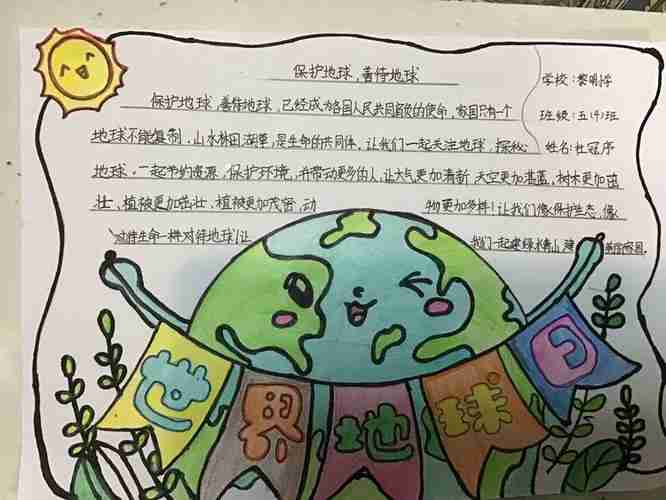 保护地球,善待地球
学校:黎明学
保护地球,善待地球,已经成为各国人民共同的使命,家园只有一个
班级:五(4)班
地球不能复制,山水林田湖草,是生命的共同体,让我们一起关注地球,探秘
姓名:杜冠序
地球,一起节约资源,保护环境,并带动更多的人,让大气更加清新,天空更加湛蓝,树木更加茁
壮、植被更加茁壮、植被更加茂密,动
物更加多样!让我们像保护生态,像
对待生命一样对待地球!让
我们一起建绿水青山,建美丽家园。
世界地球日